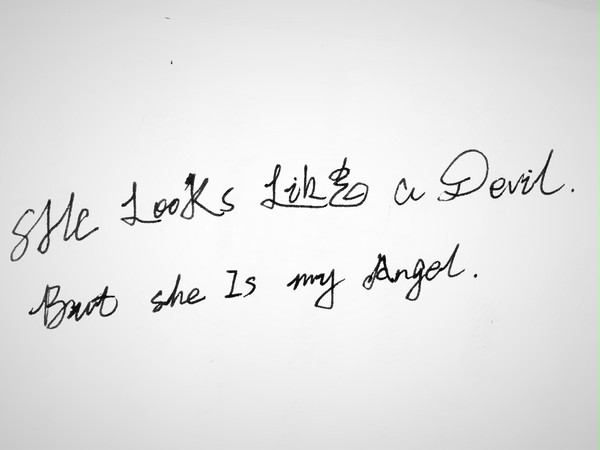 SHe Looks Like a Devil.
But she Is my Angel.